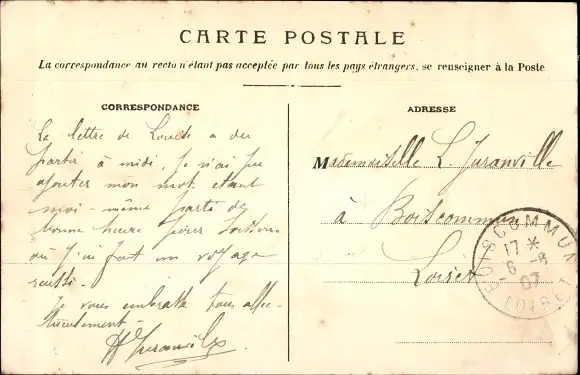 CARTE POSTALE
La correspondance au recto n'étant pas acceptée par tous les pays étrangers, se renseigner à la Poste
CORRESPONDANCE
La lettre de Louise a du
partir à midi, je n'ai pu
ajouter mon mot étant
moi-même parti de
bonne heure pour
où j'ai fait un voyage
réussi.
Je vous embrasse tous affec-
tueusement.
Juranville
ADRESSE
Mademoiselle L. Juranville
à Boiscommun
Loiret
BOISCOMMUN
17 *
6 -8
07
LOIRET